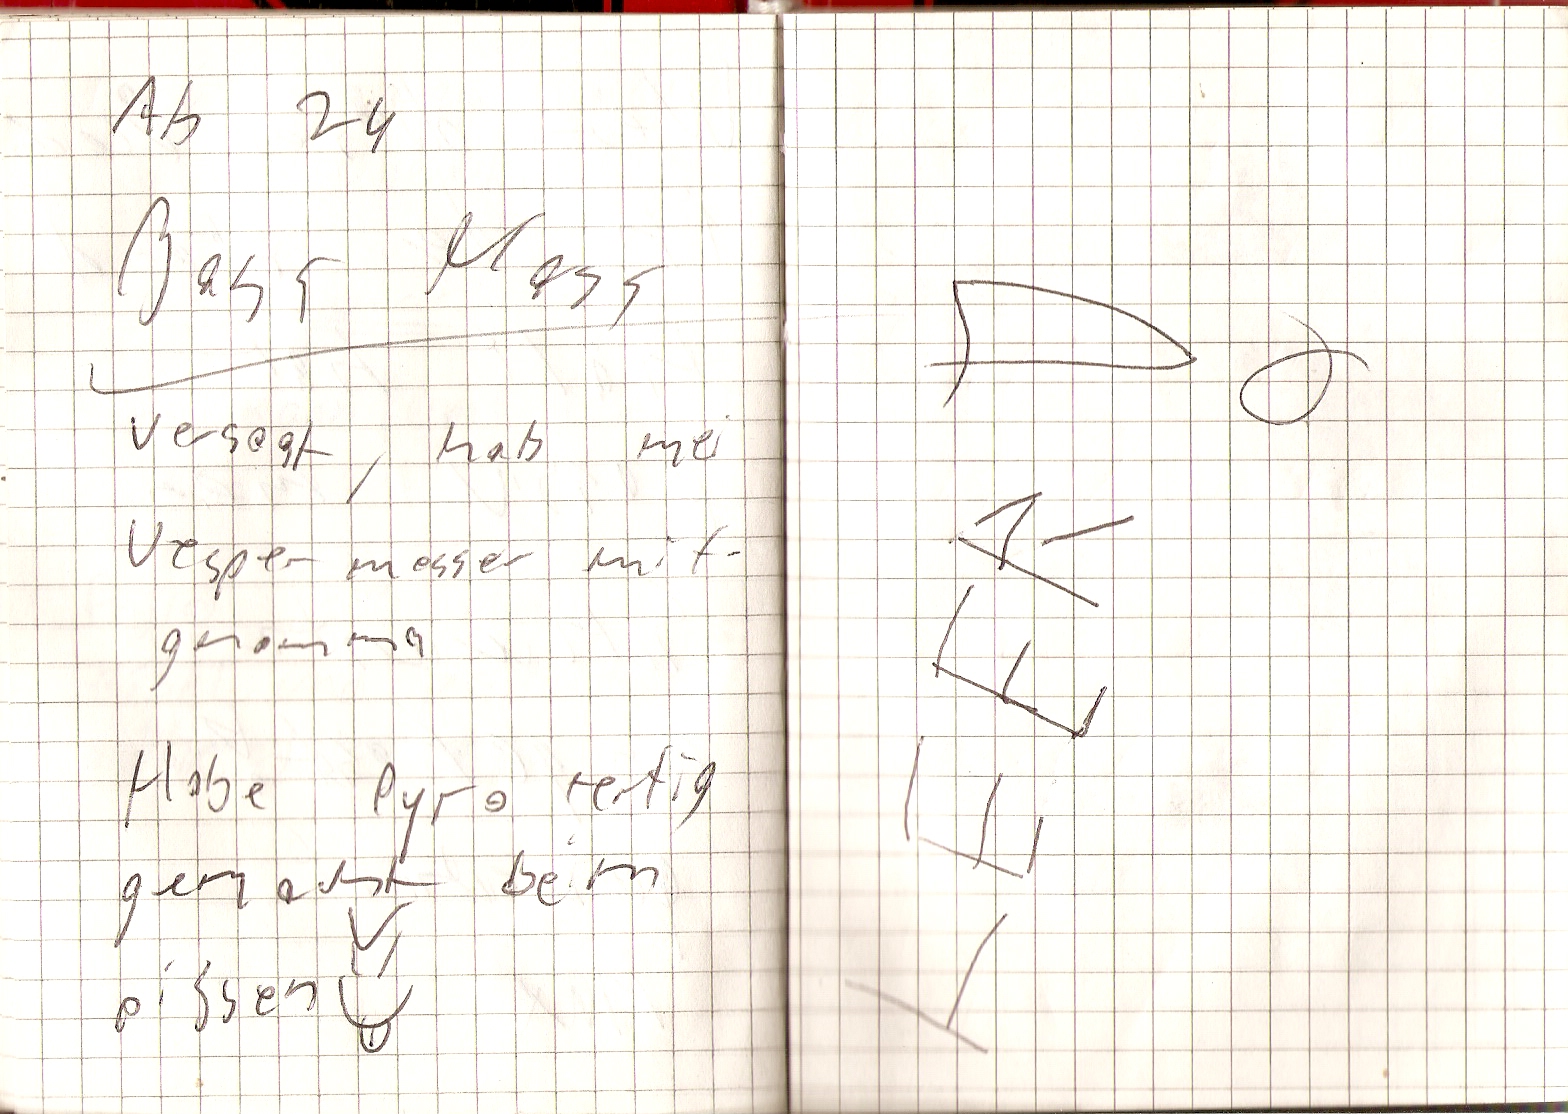 Ab 24
Bass Mass
versagt, hab mei
Vespermesser mit-
genomma
Habe Pyro fertig
gemacht beim
pissen